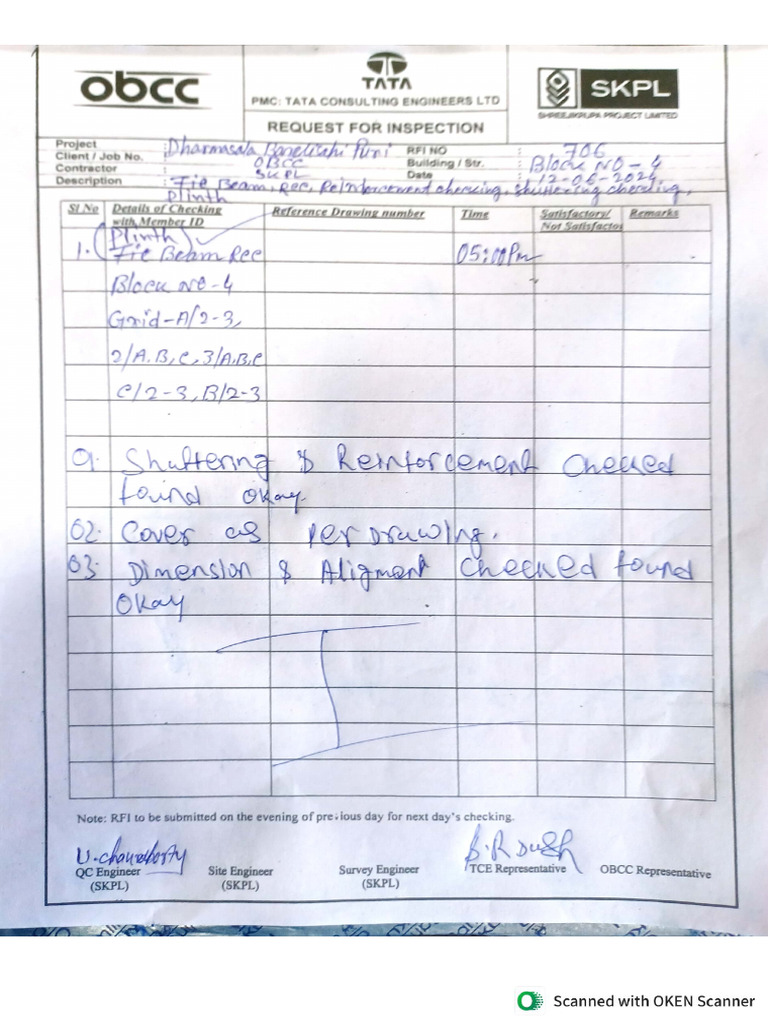 obcc
TATA
PMC: TATA CONSULTING ENGINEERS LTD
SKPL
SHREEJIKRUPA PROJECT LIMITED
REQUEST FOR INSPECTION
Project : Dharmasala Puri RFI NO : 706
Client / Job No. : OBCC Building / Str. : Block NO - 4
Contractor : SKPL Date : 12-05-2024
Description : Tie Beam, Rec, Reinforcement checking, shuttering checking,
Plinth
Sl No Details of Checking with Member ID Reference Drawing number Time Satisfactory/ Not Satisfactor Remarks
(Plinth)
1. Tie Beam Rec 05:00Pm
Block NO-4
Grid-A/2-3,
2/A.B,C,3/A.B,C
C/2-3,B/2-3
01. Shuttering & Reinforcement Checked
found okay.
02. Cover as per Drawing.
03. Dimension & Aligment checked found
Okay
Note: RFI to be submitted on the evening of previous day for next day's checking.
QC Engineer Site Engineer Survey Engineer TCE Representative OBCC Representative
(SKPL) (SKPL) (SKPL)
Scanned with OKEN Scanner